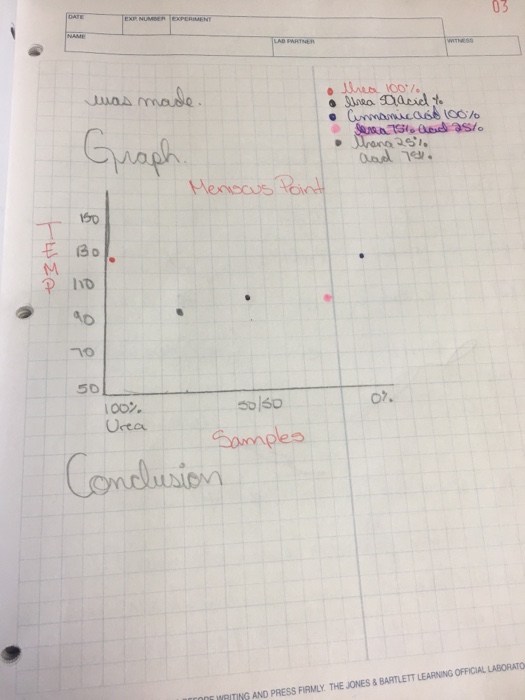 03
DATE
EXP. NUMBER
EXPERIMENT
NAME
LAB PARTNER
WITNESS
was made.
Urea 100%
Urea 50, acid %
100%
75% acid 25%
25%
acid 75%.
Graph.
Meniscus Point
TEMP
150
130
110
90
70
50
100%
Urea
50/50
0%
Samples
Conclusion
WRITING AND PRESS FIRMLY. THE JONES & BARTLETT LEARNING OFFICIAL LABORATO